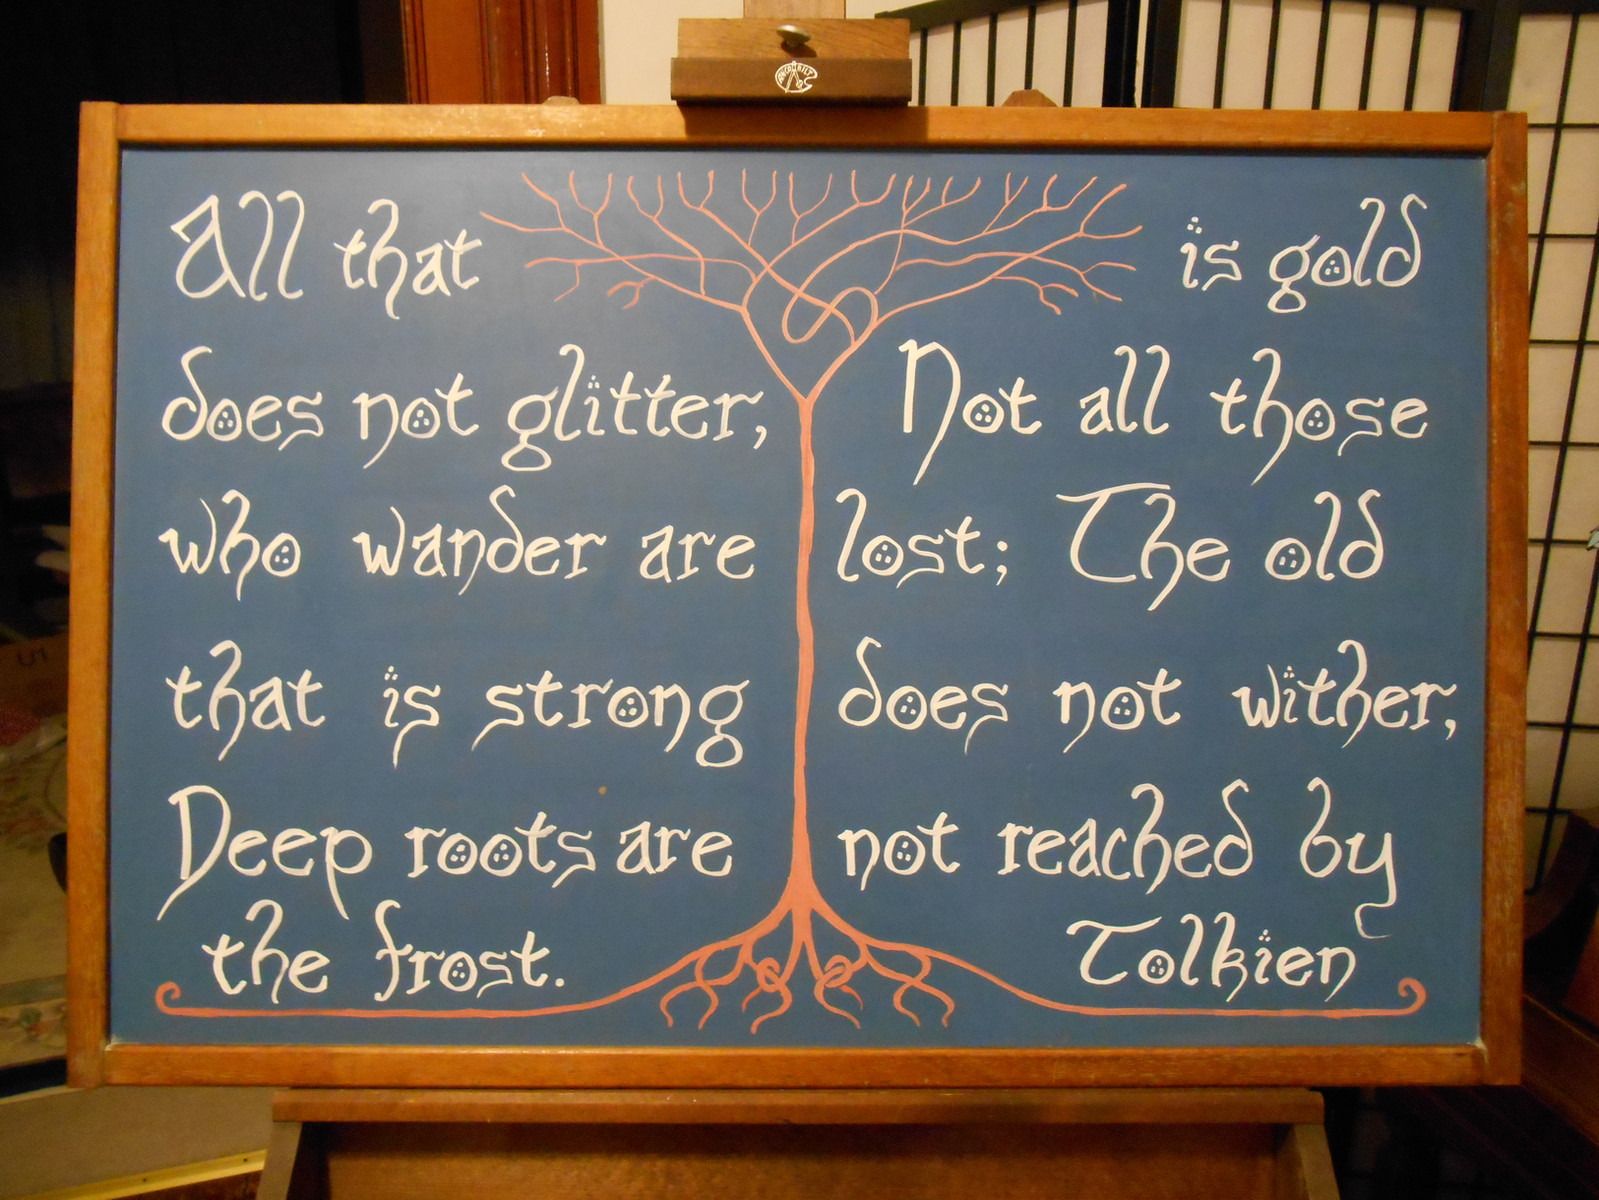 All that is gold
does not glitter, Not all those
who wander are lost; The old
that is strong does not wither,
Deep roots are not reached by
the frost. Tolkien